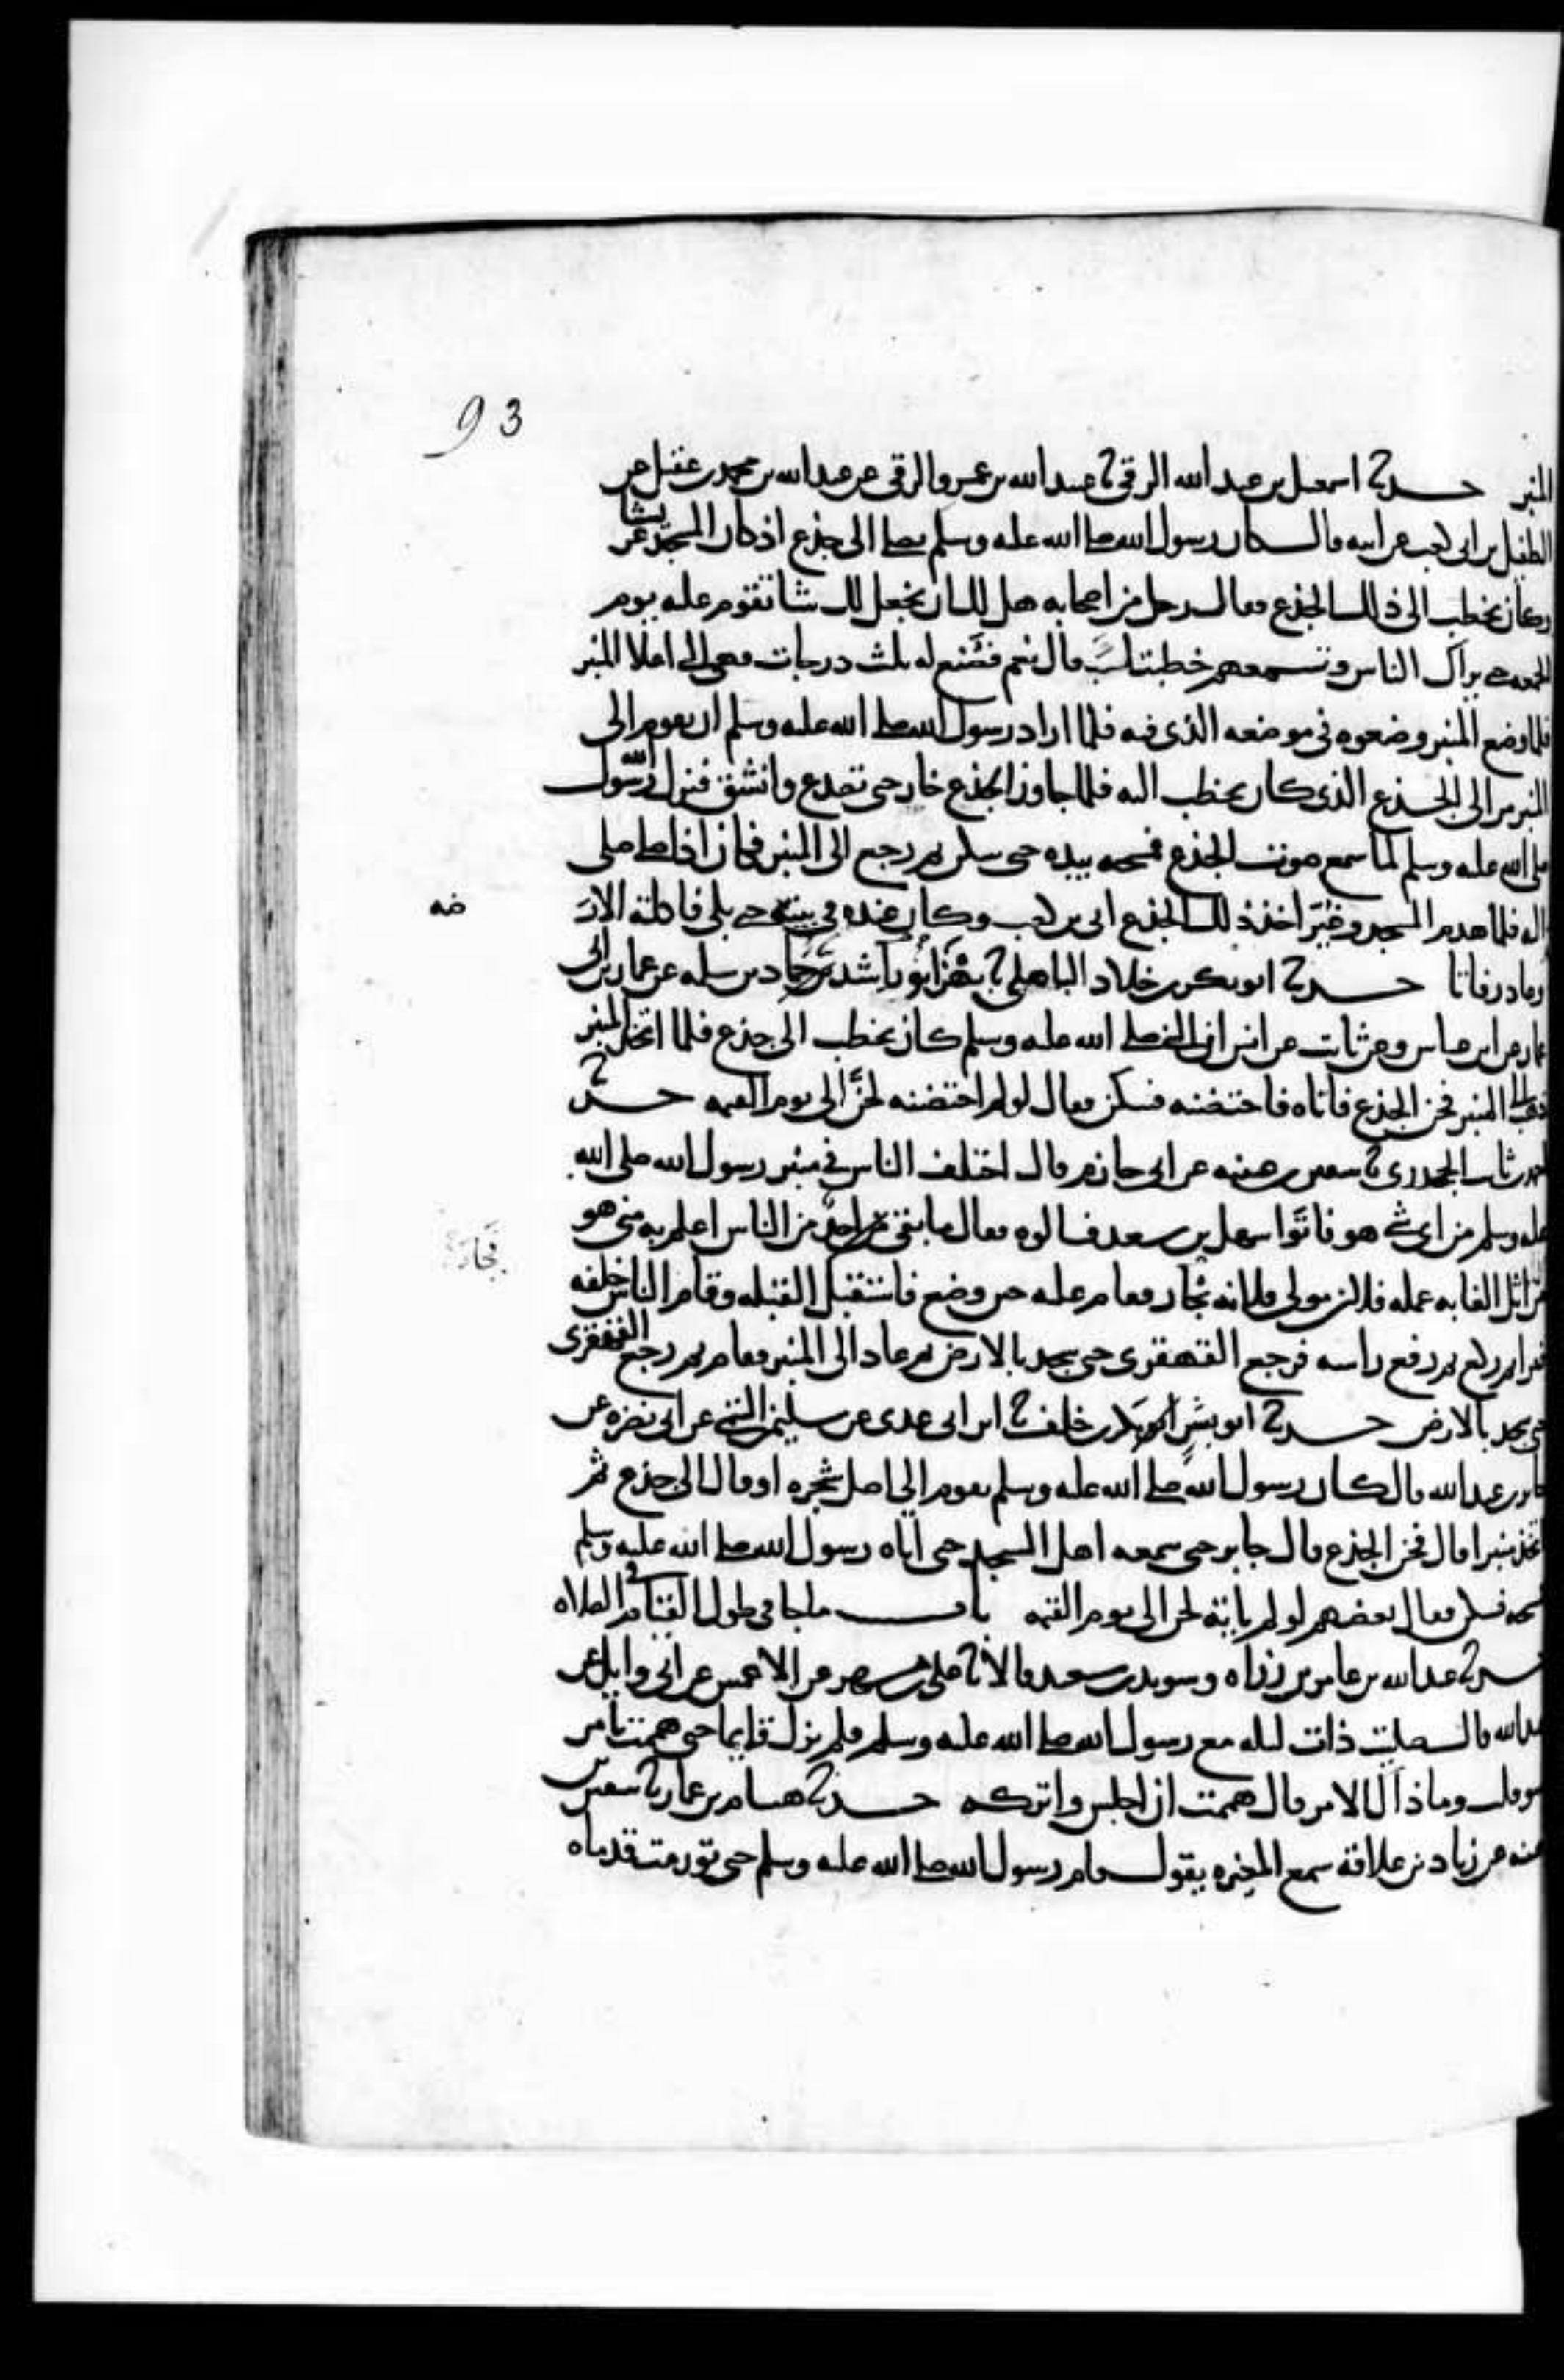 93
المنبر حدثنا اسمعيل بن عبد الله الرقي نا عبيد الله بن عمرو الرقي عن عبد الله بن محمد بن عقيل عن
الطفيل بن ابي كعب عن ابيه قال كان رسول الله صلى الله عليه وسلم يصلي الى جذع اذ كان المسجد عريشا
وكان يخطب الى ذلك الجذع فقال رجل من اصحابه هل لك ان نجعل لك شيا تقوم عليه يوم
الجمعه حتى يراك الناس وتسمعهم خطبتك قال نعم فصنع له ثلث درجات فهي التي اعلا المنبر
فلما وضع المنبر وضعوه في موضعه الذي فيه فلما اراد رسول الله صلى الله عليه وسلم ان يقوم الى
المنبر مر الى الجذع الذي كان يخطب اليه فلما جاوز الجذع خار حتى تصدع وانشق فنزل رسول
صلى الله عليه وسلم لما سمع صوت الجذع فمسحه بيده حتى سكن ثم رجع الى المنبر فكان اذا صلى صلى
اليه فلما هدم المسجد وغير اخذ ذلك الجذع ابي بن كعب وكان عنده في بيته حتى بلي فاكلته الارضه
وعاد رفاتا حدثنا ابو بكر بن خلاد الباهلي نا بهز بن اسد نا حماد بن سلمه عن عمار بن ابي
عمار عن ابن عباس وعن ثابت عن انس ان النبي صلى الله عليه وسلم كان يخطب الى جذع فلما اتخذ المنبر
ذهب الى المنبر فحن الجذع فاتاه فاحتضنه فسكن فقال لو لم احتضنه لحن الى يوم القيمه حدثنا
احمد بن ثابت الجحدري نا سفين بن عيينه عن ابي حازم قال اختلف الناس في منبر رسول الله صلى الله
عليه وسلم من اي شي هو فاتوا سهل بن سعد فسالوه فقال ما بقي احد من الناس اعلم به مني هو
من اثل الغابه عمله فلان مولى فلانه نجار فقام عليه حين وضع فاستقبل القبله وقام الناس خلفه
فقرا ثم ركع ثم رفع راسه فرجع القهقرى حتى سجد بالارض ثم عاد الى المنبر فقام ثم رجع القهقرى
حتى سجد بالارض حدثنا ابو بشر بكر بن خلف نا ابن ابي عدي عن سليمن التيمي عن ابي نضره عن
جابر بن عبد الله قال كان رسول الله صلى الله عليه وسلم يقوم الى اصل شجره او قال الى جذع ثم
اتخذ منبرا قال فحن الجذع قال جابر حتى سمعه اهل المسجد حتى اتاه رسول الله صلى الله عليه وسلم
فمسحه فسكن فقال بعضهم لو لم ياته لحن الى يوم القيمه باب ما جا في طول القيام في الصلاه
حدثنا عبد الله بن عامر بن زراره وسويد بن سعيد قالا نا علي بن مسهر عن الاعمش عن ابي وايل عن
عبد الله قال صليت ذات ليله مع رسول الله صلى الله عليه وسلم فلم يزل قايما حتى هممت بامر
سو قلت وما ذاك الامر قال هممت ان اجلس واتركه حدثنا هشام بن عمار نا سفين بن
عيينه عن زياد بن علاقه سمع المغيره يقول قام رسول الله صلى الله عليه وسلم حتى تورمت قدماه